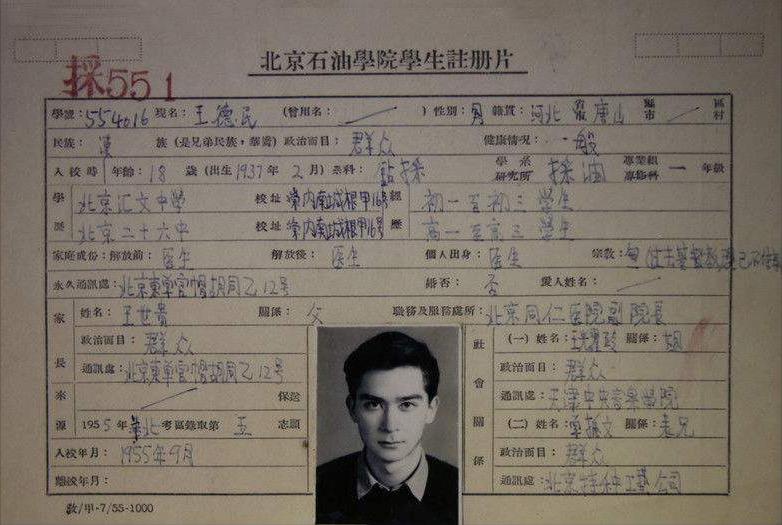 北京石油學院學生註册片
採551
學號：554016 現名：王德民 （曾用名： ） 性別：男 籍貫：河北 省市 唐山 縣市 區村
民族：漢 族（是兄弟民族，華僑）政治面目：群众 健康情况：一般
入校時 年齡：18 歲（出生1937年2月）系科：鉆採 學系 研究所 採油 專業組 專修科 一 年級
學 北京汇文中学 校址 崇内南城根甲16号 經 初一至初三 学生
歷 北京二十六中 校址 崇内南城根甲16号 歷 高一至高三 学生
家庭成份：解放前：医生 解放後：医生 個人出身：医生 宗教：
永久通訊處：北京東单官帽胡同乙12号 婚否：否 愛人姓名：
家長 姓名：王世贵 關係：父 職務及服務處所：北京同仁医院副院長
政治面目：群众
通訊處：北京東单官帽胡同乙12号
社會關係 （一）姓名： 關係：
政治面目：群众
通訊處：天津中央音樂学院
來源 保送
1955年華北考區錄取第五志願
（二）姓名： 關係：
入校年月：1955年9月
政治面目：群众
離校年月：
通訊處：北京 工藝公司
敎/甲-7/55-1000